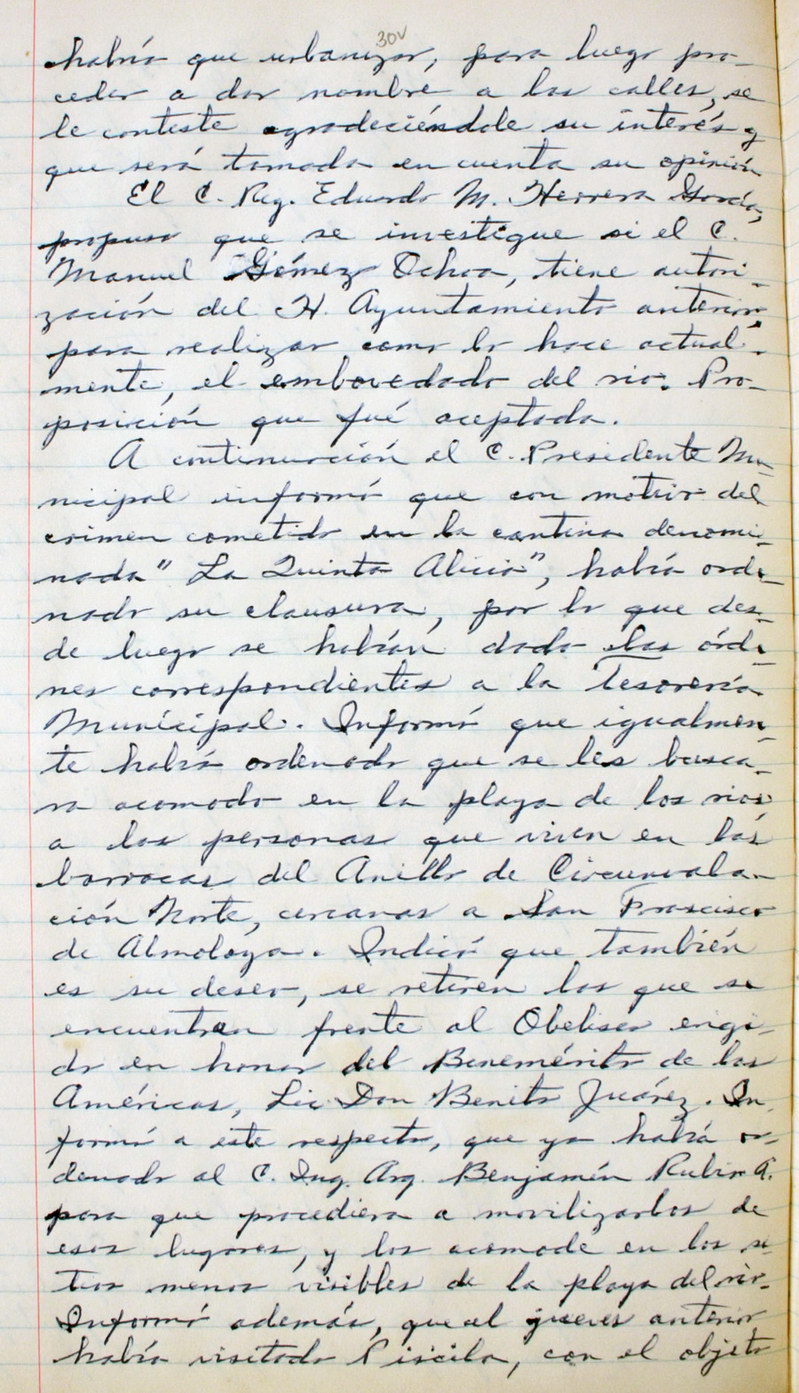 30v
habría que urbanizar, para luego pro-
ceder a dar nombre a las calles, se
le conteste agradeciéndole su interés y
que será tomada en cuenta su opinión
El C. Reg. Eduardo M. Herrera García,
propuso que se investigue si el C.
Manuel Gómez Ochoa, tiene autori-
zación del H. Ayuntamiento anterior,
para realizar como lo hace actual-
mente, el embovedado del rio. Pro-
posición que fué aceptada.
A continuación el C. Presidente Mu-
nicipal informó que con motivo del
crimen cometido en la cantina denomi-
nada "La Quinta Alicia", había orde-
nado su clausura, por lo que des-
de luego se habían dado las órde-
nes correspondientes a la Tesorería
Municipal. Informó que igualmen-
te había ordenado que se les busca-
ra acomodo en la playa de los rios
a las personas que viven en las
barracas del Anillo de Circunvala-
ción Norte, cercanas a San Francisco
de Almoloya. Indicó que también
es su deseo, se retiren las que se
encuentran frente al Obelisco erigi-
do en honor del Benemérito de las
Américas, Lic Don Benito Juárez. In-
formó a este respecto, que ya había or-
denado al C. Ing. Arq. Benjamín Rubio A.
para que procediera a movilizarlos de
esos lugares, y los acomode en los si-
tios menos visibles de la playa del rio.
Informó además, que el jueves anterior
había visitado Piscila, con el objeto